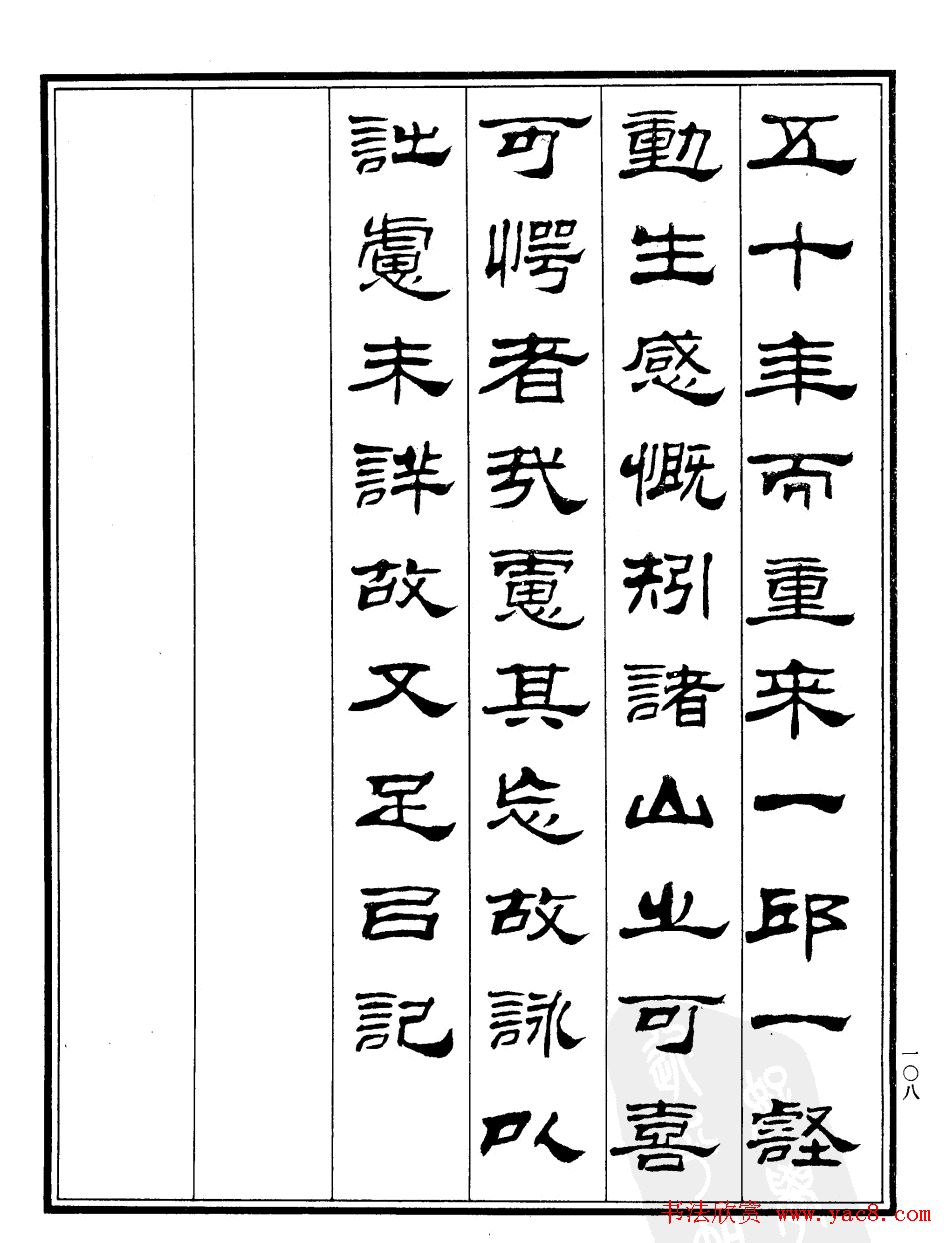 五十年而重来一邱一壑
動生感慨矧諸山之可喜
可愕者哉慮其忘故詠以
訨慮未詳故又足㠯記
一〇八
书法欣赏 www.yac8.com